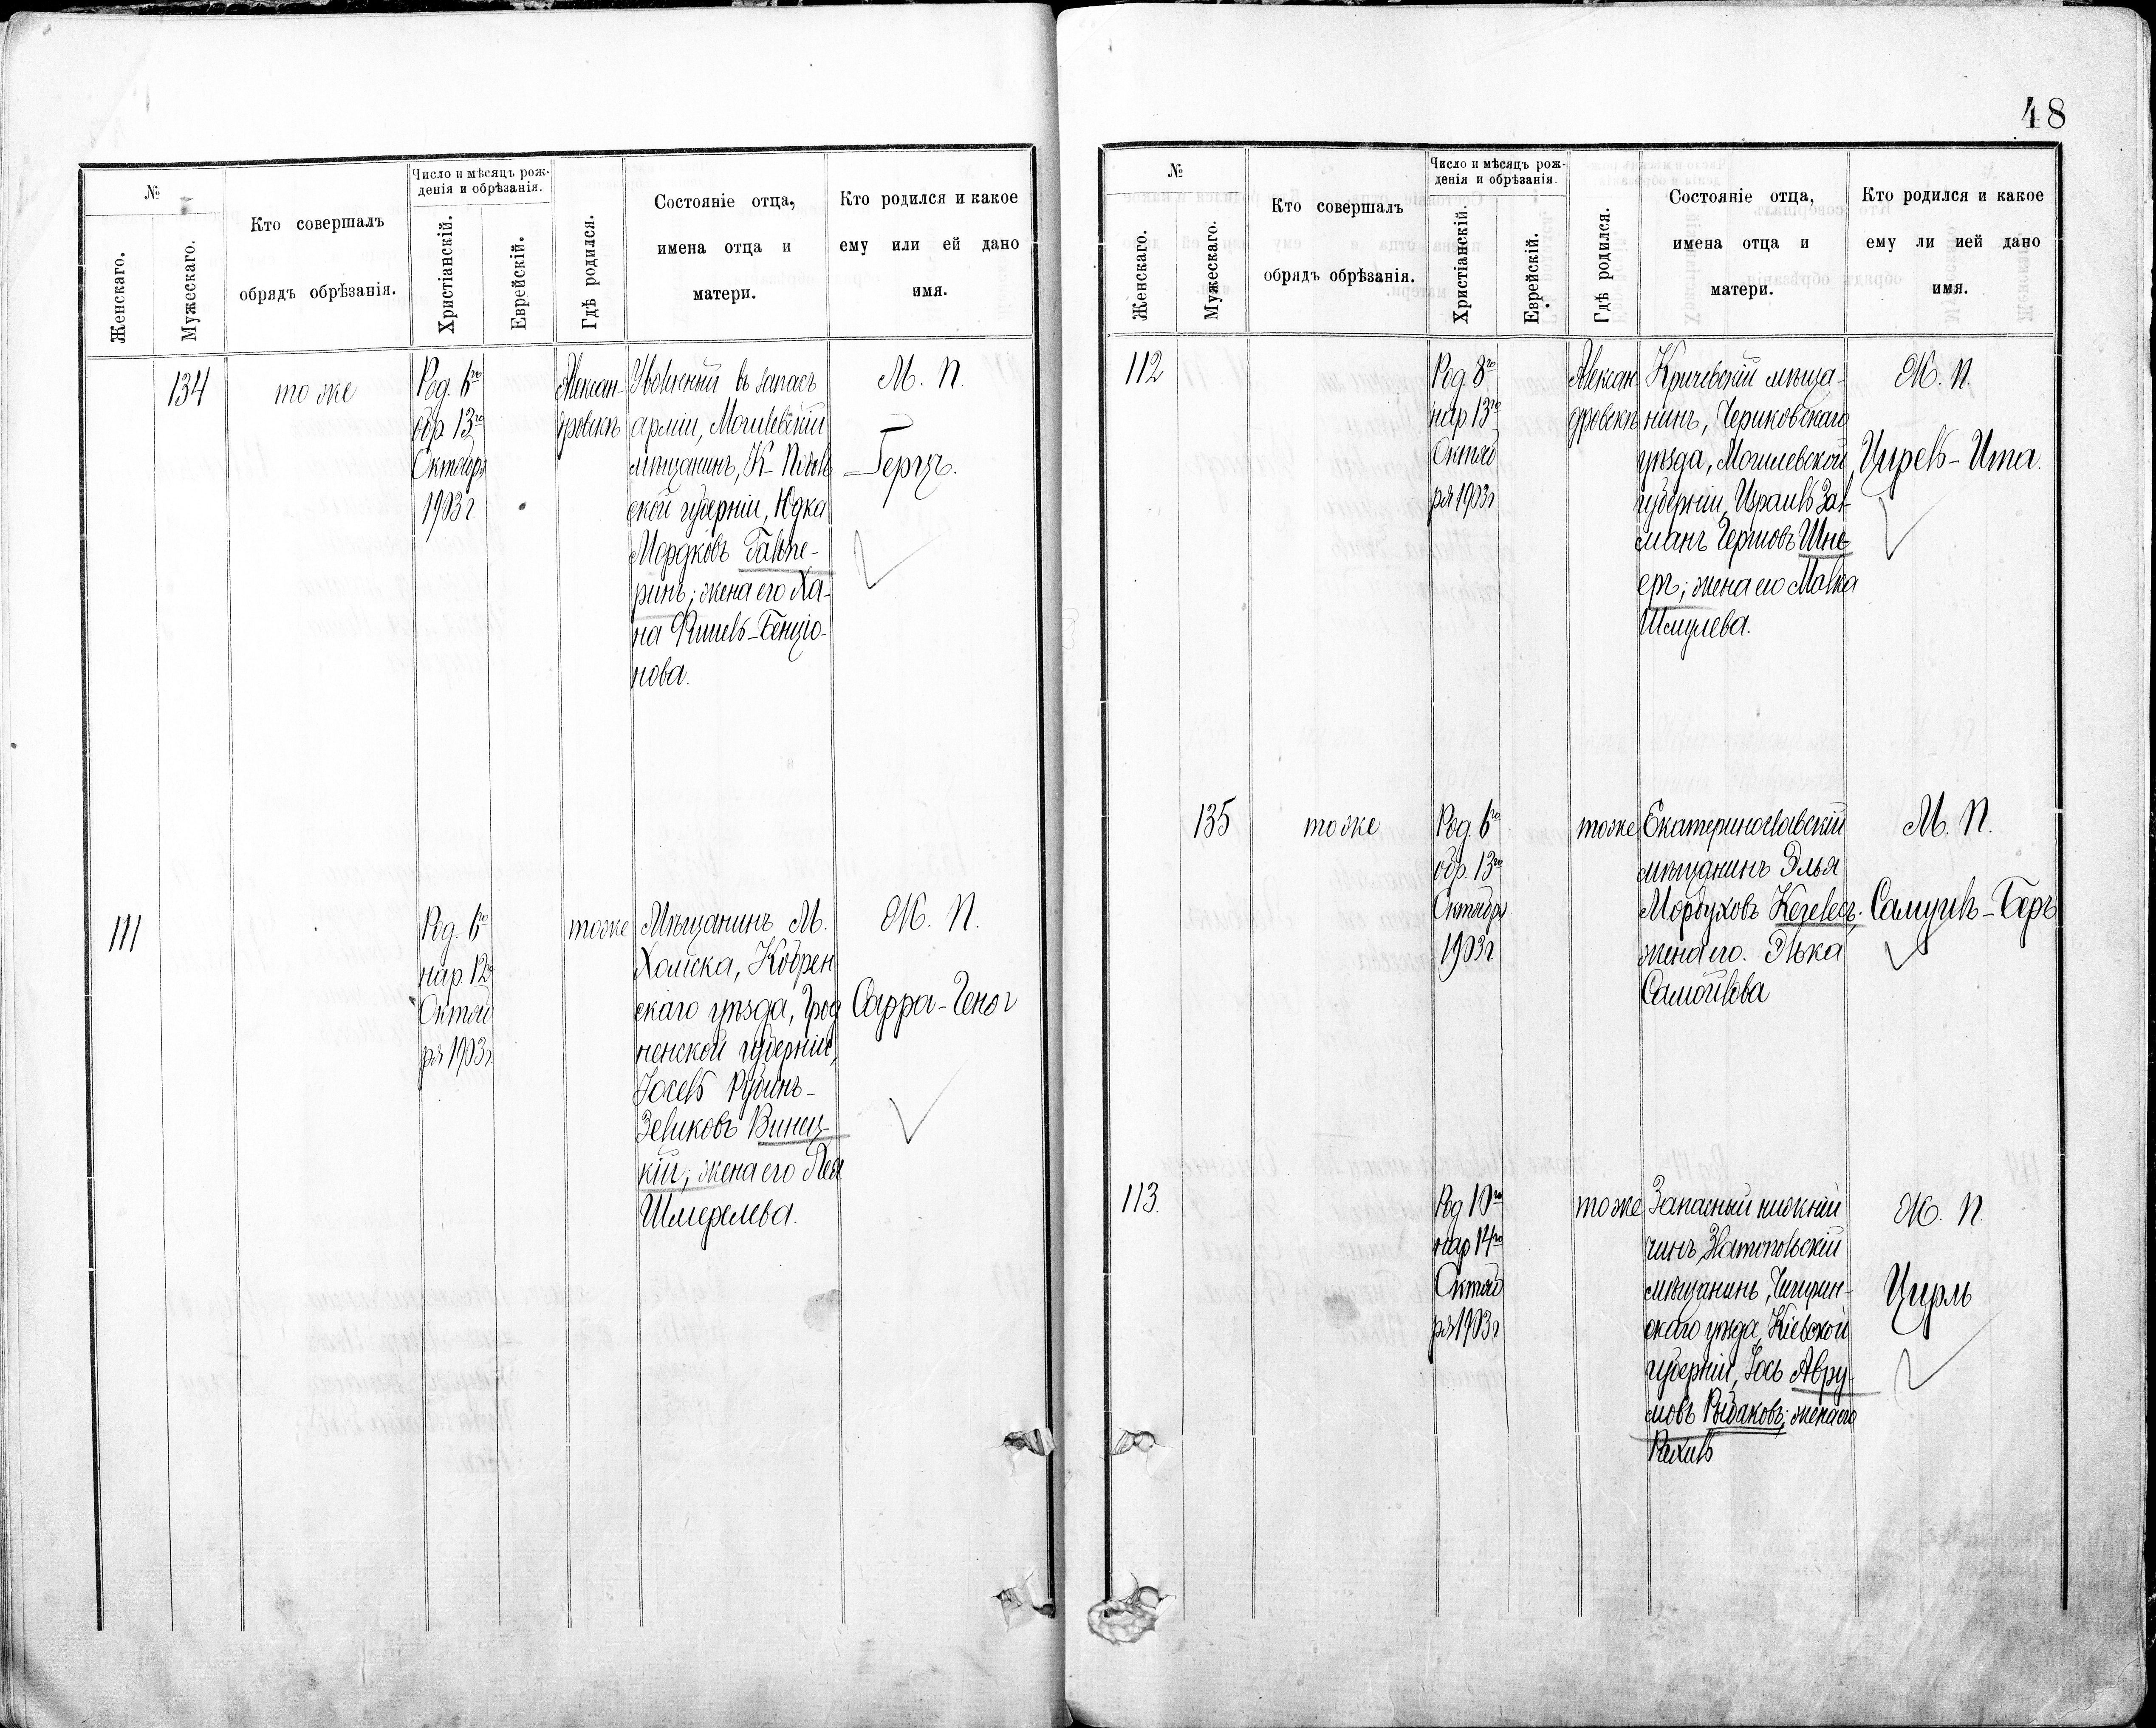 48
№
Число и мѣсяцъ рож-
денія и обрѣзанія.
Женскаго.
Мужескаго.
Кто совершалъ
обрядъ обрѣзанія.
Христіанскій.
Еврейскій.
Гдѣ родился.
Состояніе отца,
имена отца и
матери.
Кто родился и какое
ему или ей дано
имя.
134
тоже
Род. 6го
обр. 13го
Октября
1903 г.
Алексан-
дровскъ
Уволенный въ запасъ
арміи, Могилевскій
мѣщанинъ, К-Подоль
ской губерніи, Юдка
Мордковъ Гальпе-
ринъ; жена его Ха-
на Ришель-Бенціо-
нова.
М. П.
Герцъ.
111
Род. 6го
нар. 12го
Октяб
ря 1903 г
тоже
Мѣщанинъ М.
Хомска, Кобрен
скаго уѣзда, Грод
ненской губерніи,
Іосель Рубинъ-
Зеликовъ Виниц-
кій; жена его Лея
Шмерелева.
Ж. П.
Сарра-Геня
№
Число и мѣсяцъ рож-
денія и обрѣзанія.
Женскаго.
Мужескаго.
Кто совершалъ
обрядъ обрѣзанія.
Христіанскій.
Еврейскій.
Гдѣ родился.
Состояніе отца,
имена отца и
матери.
Кто родился и какое
ему ли ией дано
имя.
112
Род. 8го
нар 13го
Октяб
ря 1903 г
Алексан
дровскъ
Кричевскій мѣща-
нинъ, Чериковскаго
уѣзда, Могилевской
губерніи, Израиль Зал
манъ Гершовъ Шне-
еръ; жена его Малка
Шмулева.
Ж. П.
Цирель-Ита.
135
тоже
Род. 6го
обр. 13го
Октября
1903 г
тоже
Екатеринославскій
мѣщанинъ Элья
Мордуховъ Кегелесъ;
жена его. Элька
Самойлова
М. П.
Самуилъ-Беръ
113.
Род 10го
нар 14го
Октяб
ря 1903 г
тоже
Запасный нижній
чинъ, Златопольскій
мѣщанинъ, Чигирин-
скаго уѣзда, Кіевской
губерніи, Іось Авру-
мовъ Рыбаковъ; жена его
Рахиль
Ж. П.
Цирль